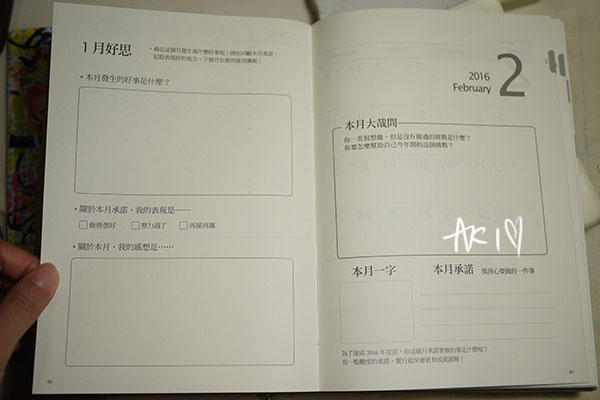 1月好思
•過去這個月發生過什麼好事呢?請你回顧本月承諾,
記取表現好的地方,下個月也要再接再厲喔!
•本月發生的好事是什麼?
•關於本月承諾,我的表現是……
做得很好 努力過了 再接再厲
•關於本月,我的感想是……
46
2016
February
2
本月大哉問
你一直很想做,但是沒有做過的挑戰是什麼?
你要怎麼幫助自己今年開始這個挑戰?
AKI♡
本月一字
本月承諾 我決心要做的一件事
為了達成2016年宣言,你這個月承諾要做的事是什麼呢?
有一點難度的承諾,實行起來會更有成就感喔!